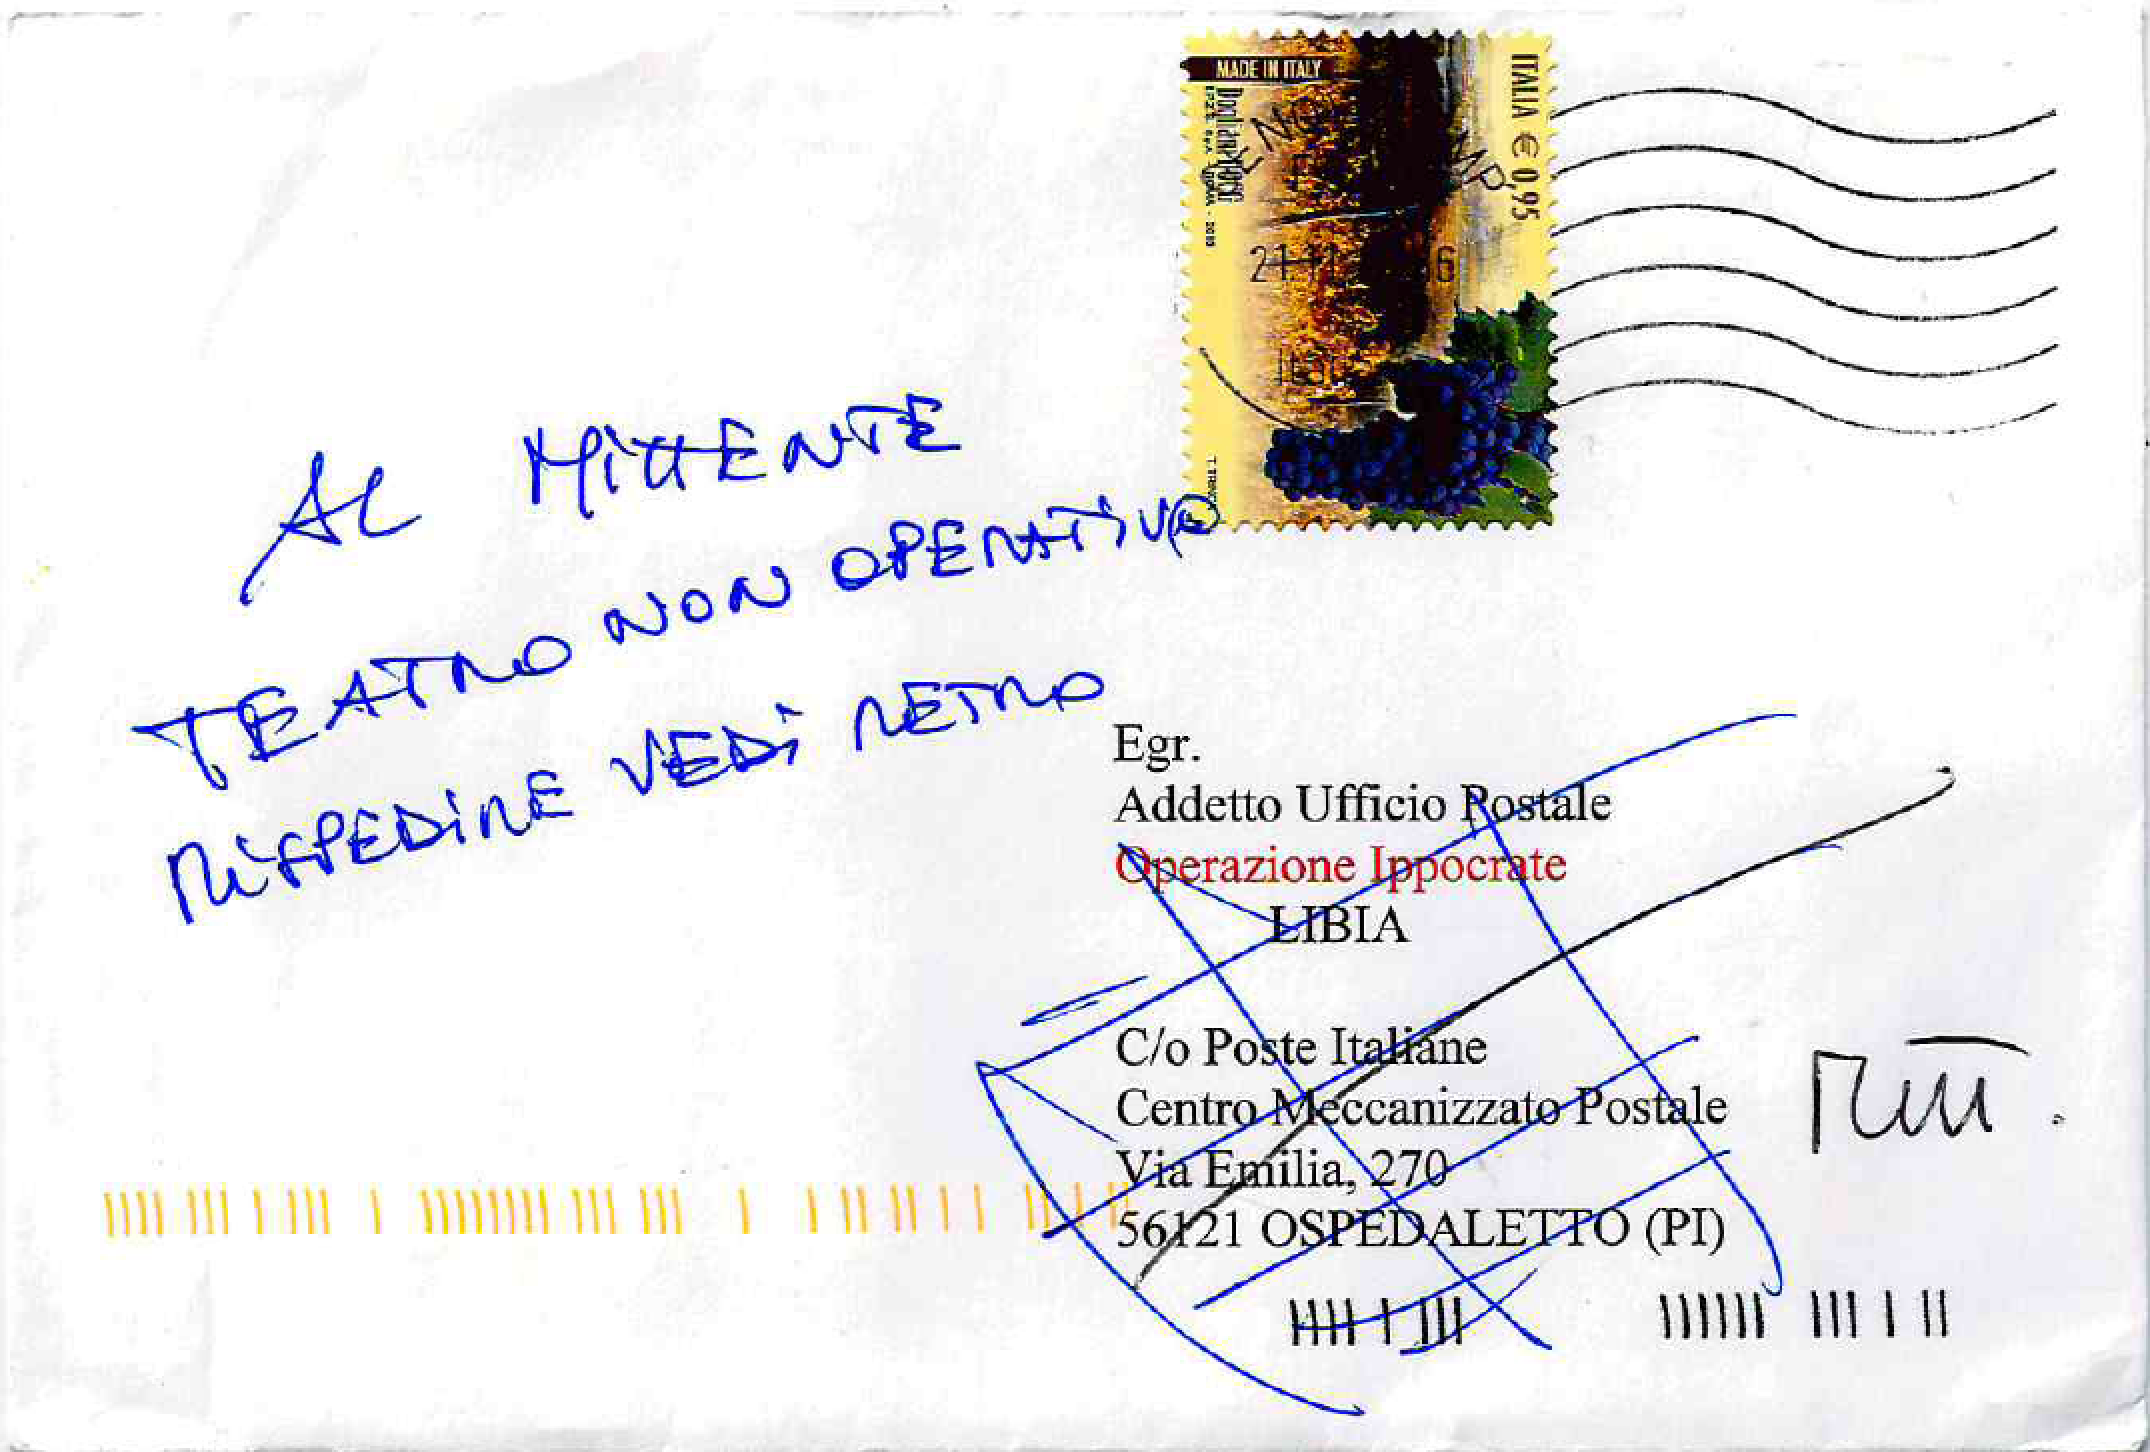 MADE IN ITALY
ITALIA € 0,95
AL MITTENTE
TEATRO NON OPERATIVO
RISPEDIRE VEDI RETRO
Egr.
Addetto Ufficio Postale
Operazione Ippocrate
LIBIA
C/o Poste Italiane
Centro Meccanizzato Postale
Via Emilia, 270
56121 OSPEDALETTO (PI)